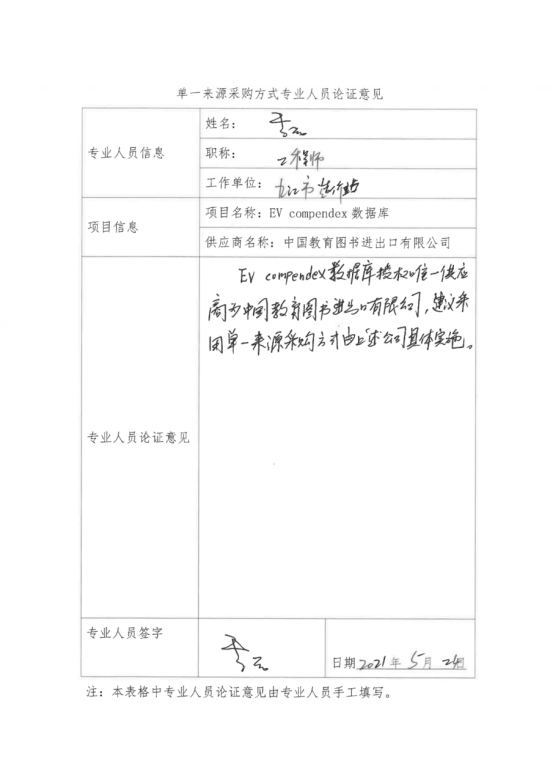 单一来源采购方式专业人员论证意见
专业人员信息
姓名：李云
职称：工程师
工作单位：九江市
项目信息
项目名称：EV compendex 数据库
供应商名称：中国教育图书进出口有限公司
专业人员论证意见
EV compendex数据库授权唯一供应
商为中国教育图书进出口有限公司，建议采
用单一来源采购方式由上述公司具体实施。
专业人员签字
李云
日期 2021年5月24日
注：本表格中专业人员论证意见由专业人员手工填写。